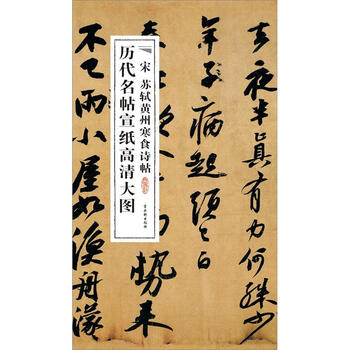 去夜半真有力何殊少
年子病起須已白
勢来
不已雨小屋如漁舟濛
宋 苏轼黄州寒食诗帖
历代名帖宣纸高清大图